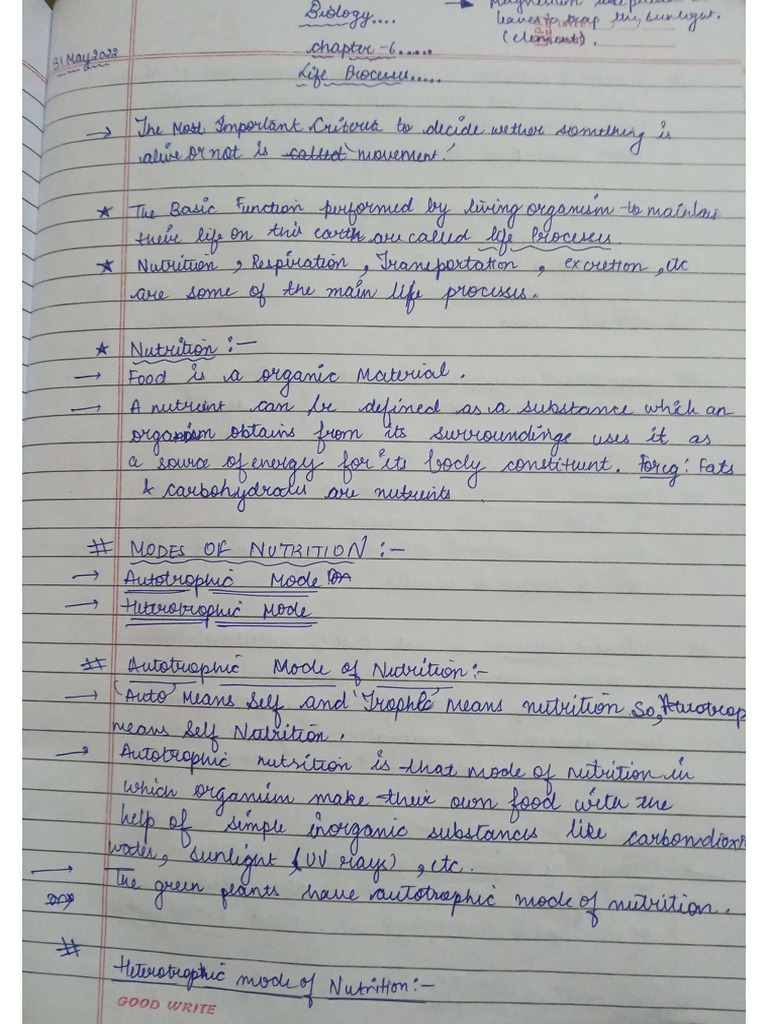 Biology....
→ Magnesium is present in
leaves to trap the sunlight.
(elements).
31 May 2022
chapter-6......
Life Processes.....
→ The Most Important Criteria to decide wether something is
alive or not is called movement.
★ The Basic Function performed by living organism to maintain
their life on this earth are called life Processes.
★ Nutrition, Respiration, Transportation, excretion, etc
are some of the main life processes.
★ Nutrition:-
→ Food is a organic Material.
→ A nutrient can be defined as a substance which an
organism obtains from its surroundinge uses it as
a source of energy for its body constituent. For eg: Fats
& carbohydrates are nutrients
# MODES OF NUTRITION:-
→ Autotrophic Mode
→ Heterotrophic Mode
# Autotrophic Mode of Nutrition:-
→ 'Auto' Means Self and 'Trophic' Means nutrition So, Autotrop
means Self Nutrition.
→ Autotrophic nutrition is that mode of nutrition in
which organism make their own food with the
help of simple inorganic substances like carbondioxi
water, sunlight (UV rays), etc.
→ The green plants have autotrophic mode of nutrition.
# Heterotrophic mode of Nutrition:-
GOOD WRITE